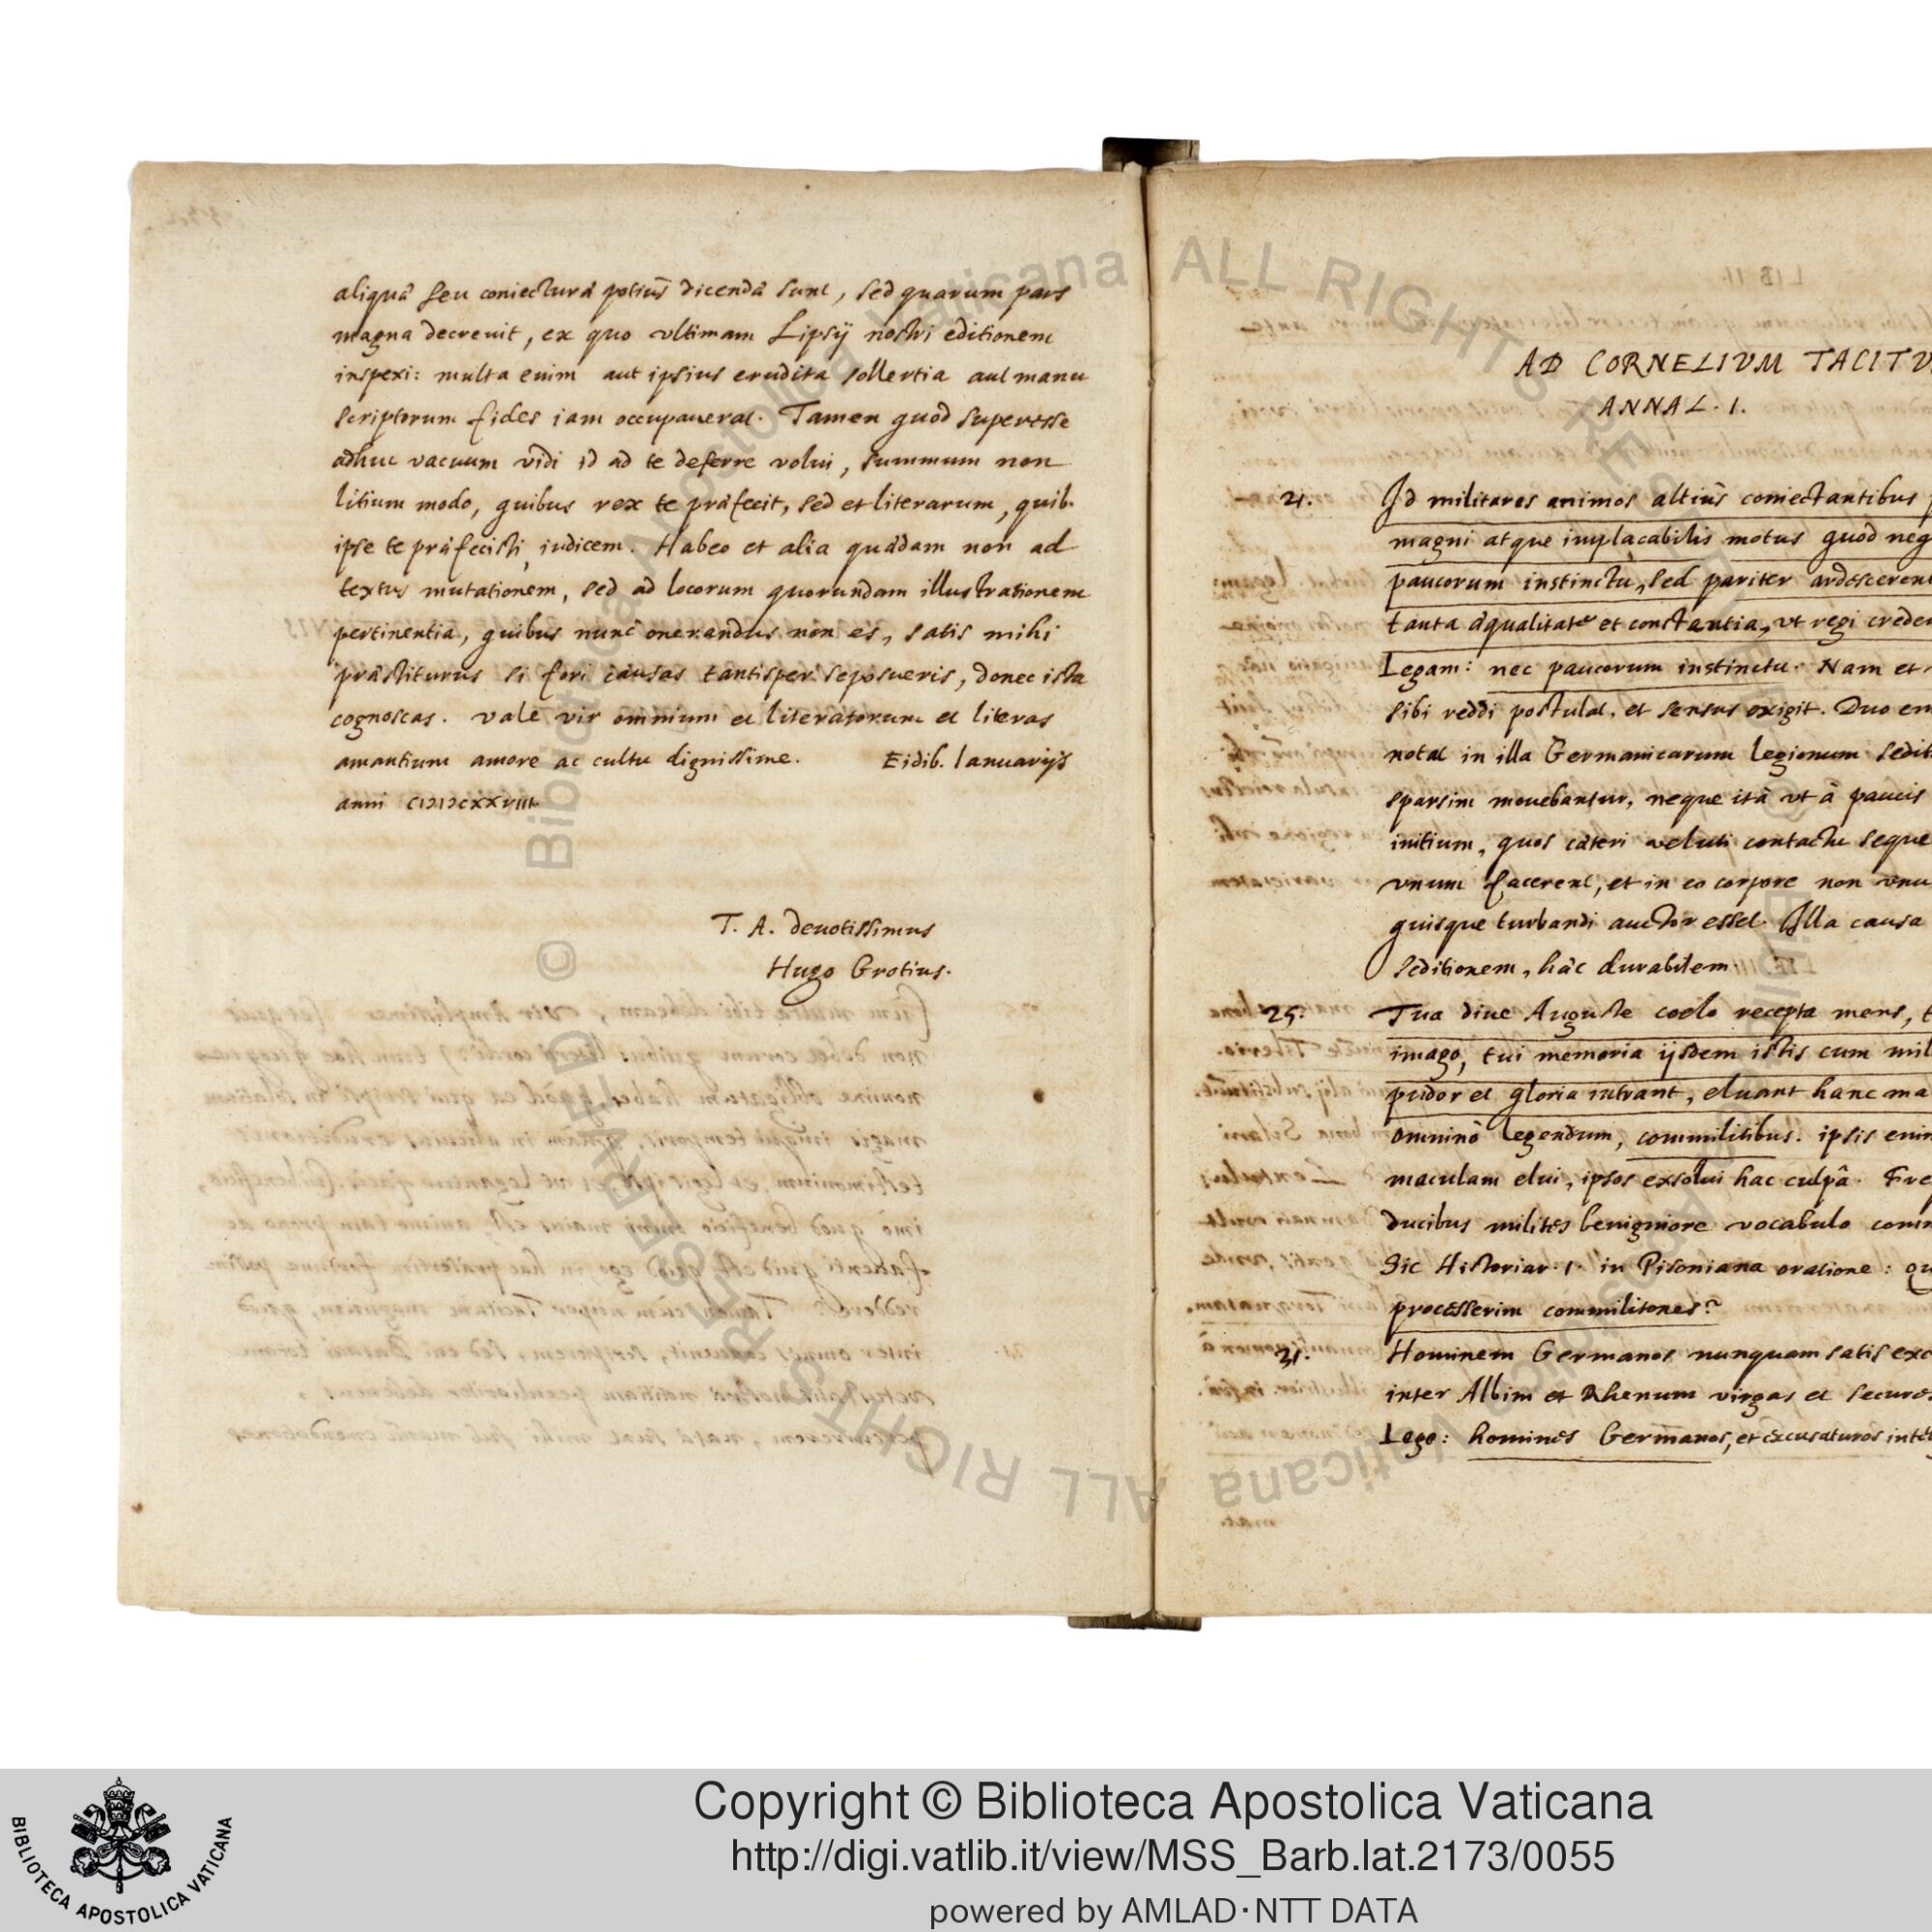 aliquâ seu coniecturâ potiùs dicenda sunt, sed quarum pars
magna decreuit, ex quo vltimam Lipsij nostri editionem
inspexi: multa enim aut ipsius erudita sollertia aut manu
scriptorum fides iam occupauerat. Tamen quod superesse
adhuc vacuum vidi id ad te deferre volui, summum non
litium modo, quibus rex te præfecit, sed et literarum, quib.
ipse te præfecisti, iudicem. Habeo et alia quædam non ad
textus mutationem, sed ad locorum quorundam illustrationem
pertinentia, quibus nunc onerandus non es, satis mihi
præstiturus si fori causas tantisper seposueris, donec ista
cognoscas. Vale vir omnium et literatorum et literas
amantium amore ac cultu dignissime. Eidib. Ianuarijs
anni CIƆIƆCXXVIII.
T. A. deuotissimus
Hugo Grotius.
LIB II.
AD CORNELIVM TACITV
ANNAL. I.
21. Id militares animos altiùs coniectantibus p
magni atque implacabilis motus quod neq
paucorum instinctu, sed pariter ardescerent
tanta æqualitate et constantia, vt regi creder
Legam: nec paucorum instinctu. Nam et
sibi reddi postulat, et sensus exigit. Duo en
notat in illa Germanicarum legionum sedit
sparsim mouebantur, neque ità vt à paucis
initium, quos cæteri veluti contactu seque
vnum facerent, et in eo corpore non vnu
quisque turbandi auctor esset. Illa causa
seditionem, hæc durabilem
25. Tua diue Auguste coelo recepta mens, t
imago, tui memoria ijsdem istis cum mil
pudor et gloria intrant, eluant hanc ma
Omninò legendum, commilitibus. ipsis enim
maculam elui, ipsos exsolui hac culpâ. Fre
ducibus milites benigniore vocabulo comm
Sic Historiar. I. in Pisoniana oratione: qu
processerim commilitones?
31. Hominem Germanos nunquam satis exc
inter Albim et Rhenum virgas et secures
Lego: homines Germanos, et excusaturos inte
Biblioteca Apostolica Vaticana ALL RIGHTS RESERVED ©
BIBLIOTECA APOSTOLICA VATICANA
Copyright © Biblioteca Apostolica Vaticana
http://digi.vatlib.it/view/MSS_Barb.lat.2173/0055
powered by AMLAD·NTT DATA